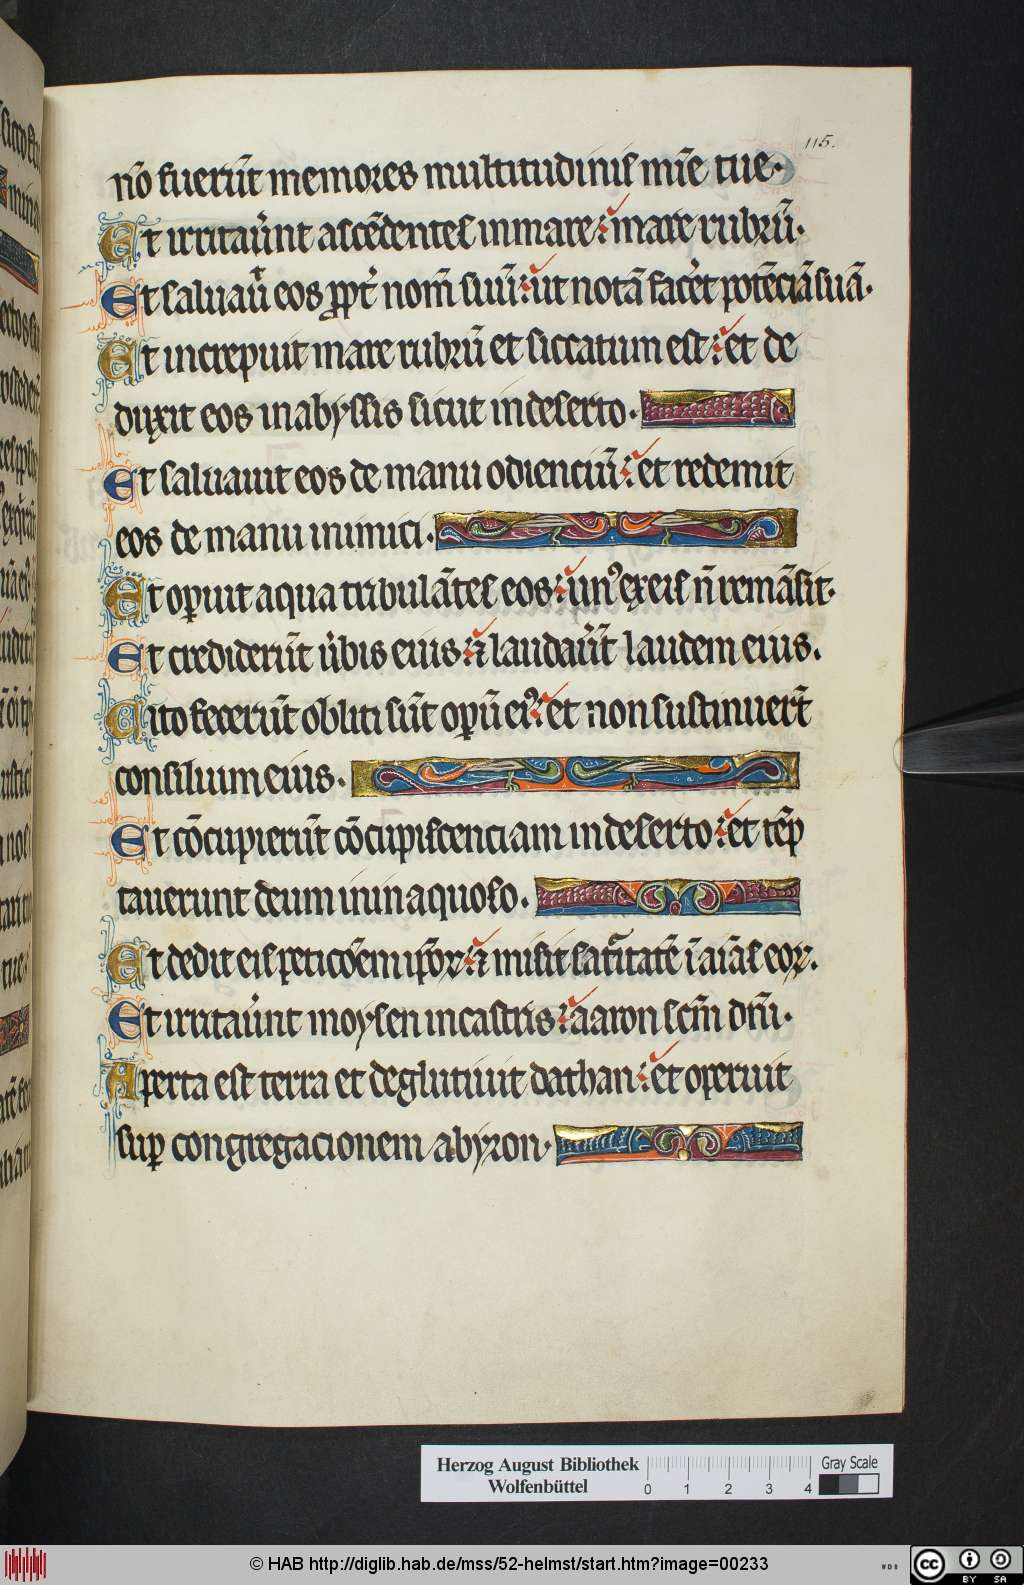 115.
nō fuerūt memores multitudinis mīe tue.
Et irritaūnt ascēdentes in mare : mare rubrū.
Et saluauī eos ꝓpt̄ nom̄ suū : ut notā facēt potēciā suā.
Et increpuit mare rubrū et siccatum est : et de
duxit eos in abyssis sicut in deserto.
Et saluauit eos de manu odienciū : et redemit
eos de manu inimici.
Et oꝑuit aqua tribulātes eos : unꝰ ex eis n̄ remāsit.
Et crediderūt ūbis eius : ⁊ laudaūt laudem eius.
Cito fecerūt obliti sūt oꝑū eiꝰ : et non sustinuer̄t
consilium eius.
Et cōcupierūt cōcupiscenciam in deserto : et tēp
tauerunt deum in inaquoso.
Et dedit eis peticōem ipsoꝝ : ⁊ misit saturitatē ī aīas eoꝝ.
Et irritaūnt moysen in castris : aaron scm̄ dn̄i.
Aperta est terra et deglutiuit dathan : et operuit
suꝑ congregacionem abyron.
Herzog August Bibliothek
Wolfenbüttel
0 1 2 3 4
Gray Scale
© HAB http://diglib.hab.de/mss/52-helmst/start.htm?image=00233
WDB
cc BY SA